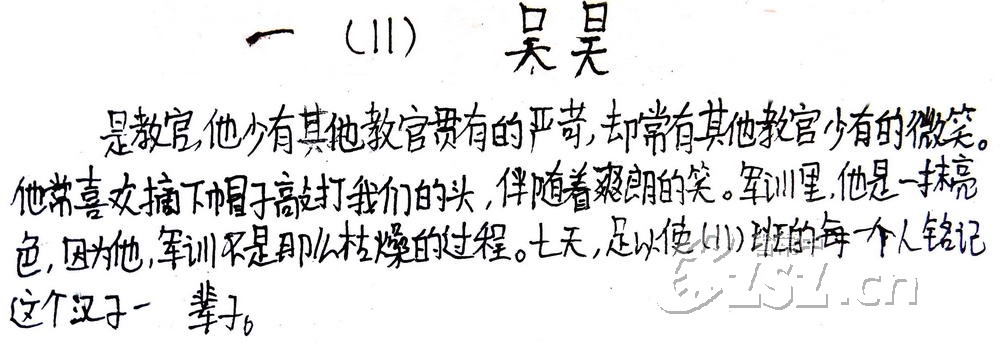 一 (11) 吴昊
是教官,他少有其他教官贯有的严苛,却常有其他教官少有的微笑。
他常喜欢摘下帽子敲打我们的头,伴随着爽朗的笑。军训里,他是一抹亮
色,因为他,军训不是那么枯燥的过程。七天,足以使(11)班的每一个人铭记
这个汉子一 辈子。
ZSZ.cn